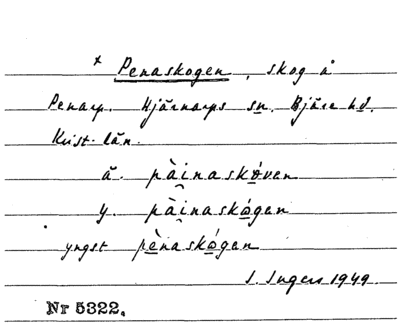 x Penaskogen, skog å
Penarp. Hjärnarps sn. Bjäre hd.
Krist. län.
ä. pài̯naskóven
y. pài̯naskógan
yngst pènaskógan
I. Ingers 1949.
Nr 5322.